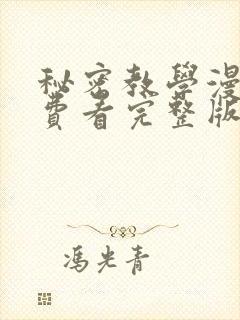 秘密教學漫
費看完整版
馮光青